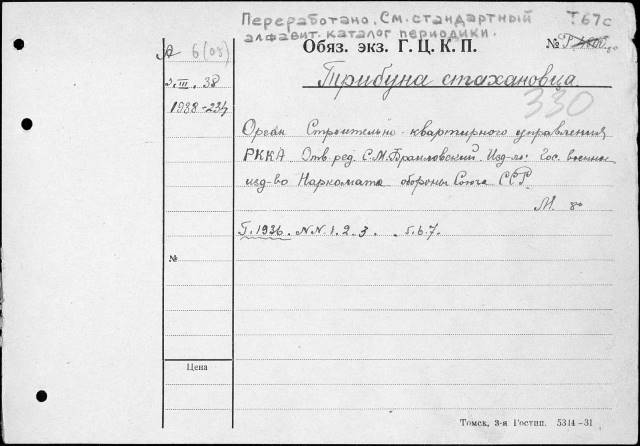 Переработано. См. стандартный Т67с
алфавит. каталог периодики.
А 6(03) Обяз. экз. Г. Ц. К. П. №
3.III.38 Трибуна стахановца
1938-234 330
Орган Строительно-квартирного управления
РККА Отв. ред. С.М. Браиловский Изд-ло: Гос. военное
изд-во Наркомата обороны Союза ССР.
М. 8°
Г. 1936. NN. 1. 2. 3. 5. 6. 7.
№
Цена
Томск, 3-я Гостип. 5314-31